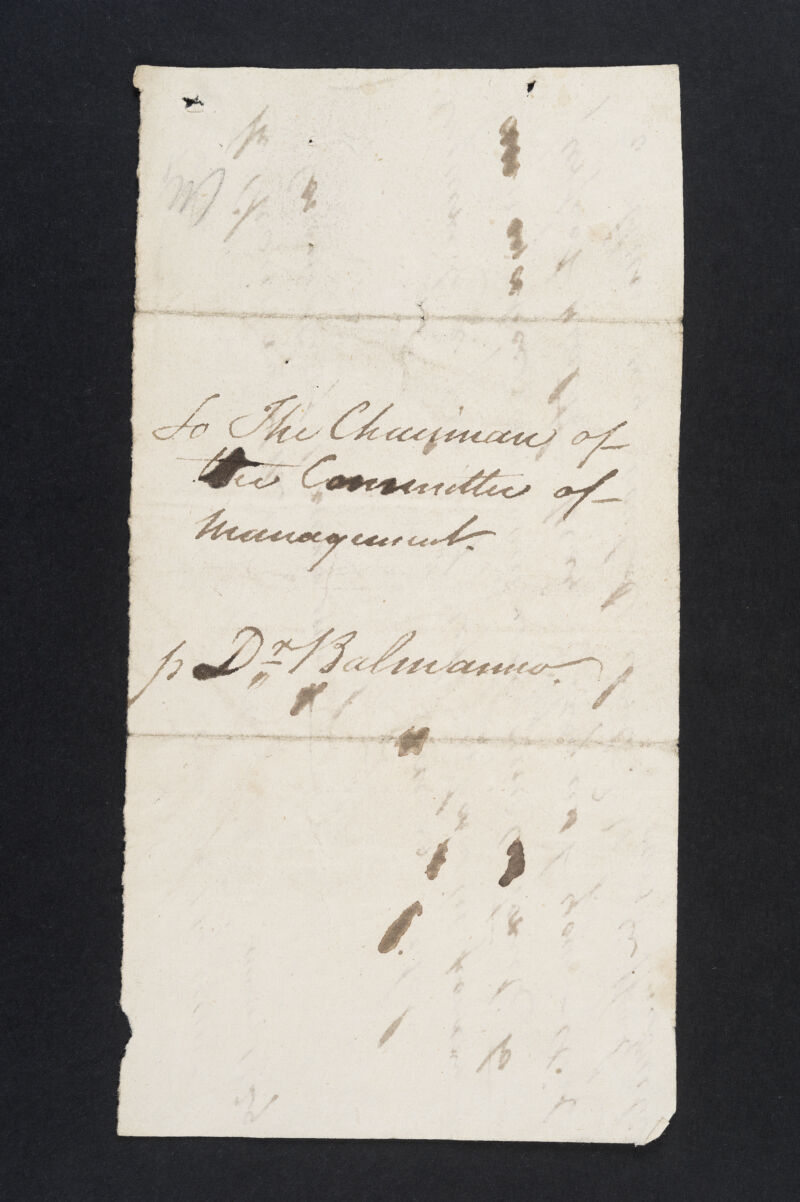 To The Chairman of
the Committee of
Management.
p Dr Balmanno.